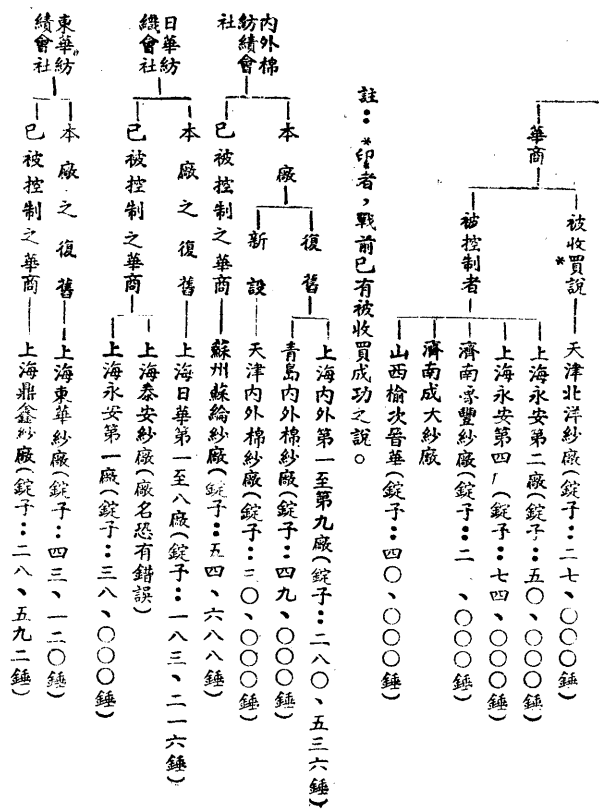 華商
被收買說*
天津北洋紗廠(錠子：二七、〇〇〇錘)
被控制者
上海永安第二廠(錠子：五〇、〇〇〇錘)
上海永安第四廠(錠子：七四、〇〇〇錘)
濟南魯豐紗廠(錠子：二、〇〇〇錘)
濟南成大紗廠
山西榆次晉華(錠子：四〇、〇〇〇錘)
註：*印者，戰前已有被收買成功之說。
內外棉紡績會社
本廠
復舊
上海內外第一至第九廠(錠子：二八〇、五三六錘)
青島內外棉紗廠(錠子：四九、〇〇〇錘)
新設
天津內外棉紗廠(錠子：二〇、〇〇〇錘)
已被控制之華商
蘇州蘇綸紗廠(錠子：五四、六八八錘)
日華紡織會社
本廠之復舊
上海日華第一至八廠(錠子：一八三、二一六錘)
已被控制之華商
上海泰安紗廠(廠名恐有錯誤)
上海永安第一廠(錠子：三八、〇〇〇錘)
東華紡績會社
本廠之復舊
上海東華紗廠(錠子：四三、一二〇錘)
已被控制之華商
上海鼎鑫紗廠(錠子：二八、五九二錘)